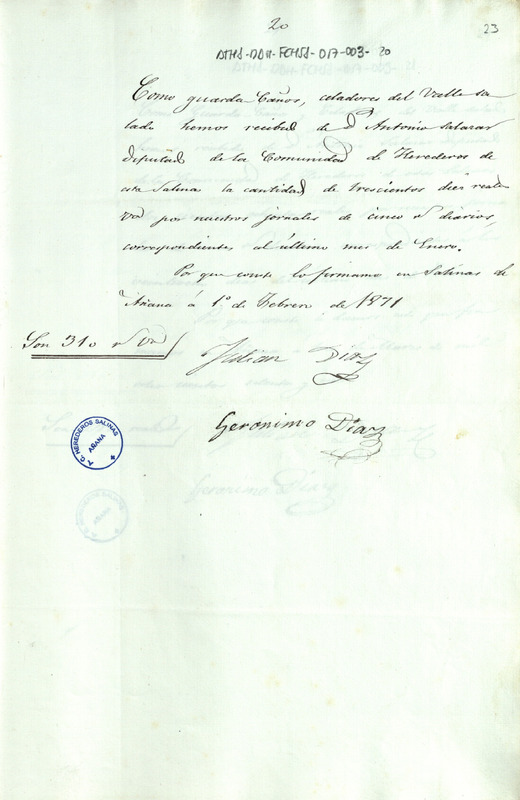 20
23
ATHA-DAH-FCHSA-017-003-20
Como guarda Caños, celadores del Valle sa
lado hemos recibido de Dn Antonio Salazar
diputado de la Comunidad de Herederos de
esta Salinas la cantidad de trescientos diez reales
Vn por nuestros jornales de cinco rs diarios,
correspondientes al último mes de Enero.
Por que conste lo firmamos en Salinas de
Añana á 1º de Febrero de 1871
Son 310 rs Vn
Julian Diaz
Geronimo Diaz
A. C. HEREDEROS SALINAS
AÑANA